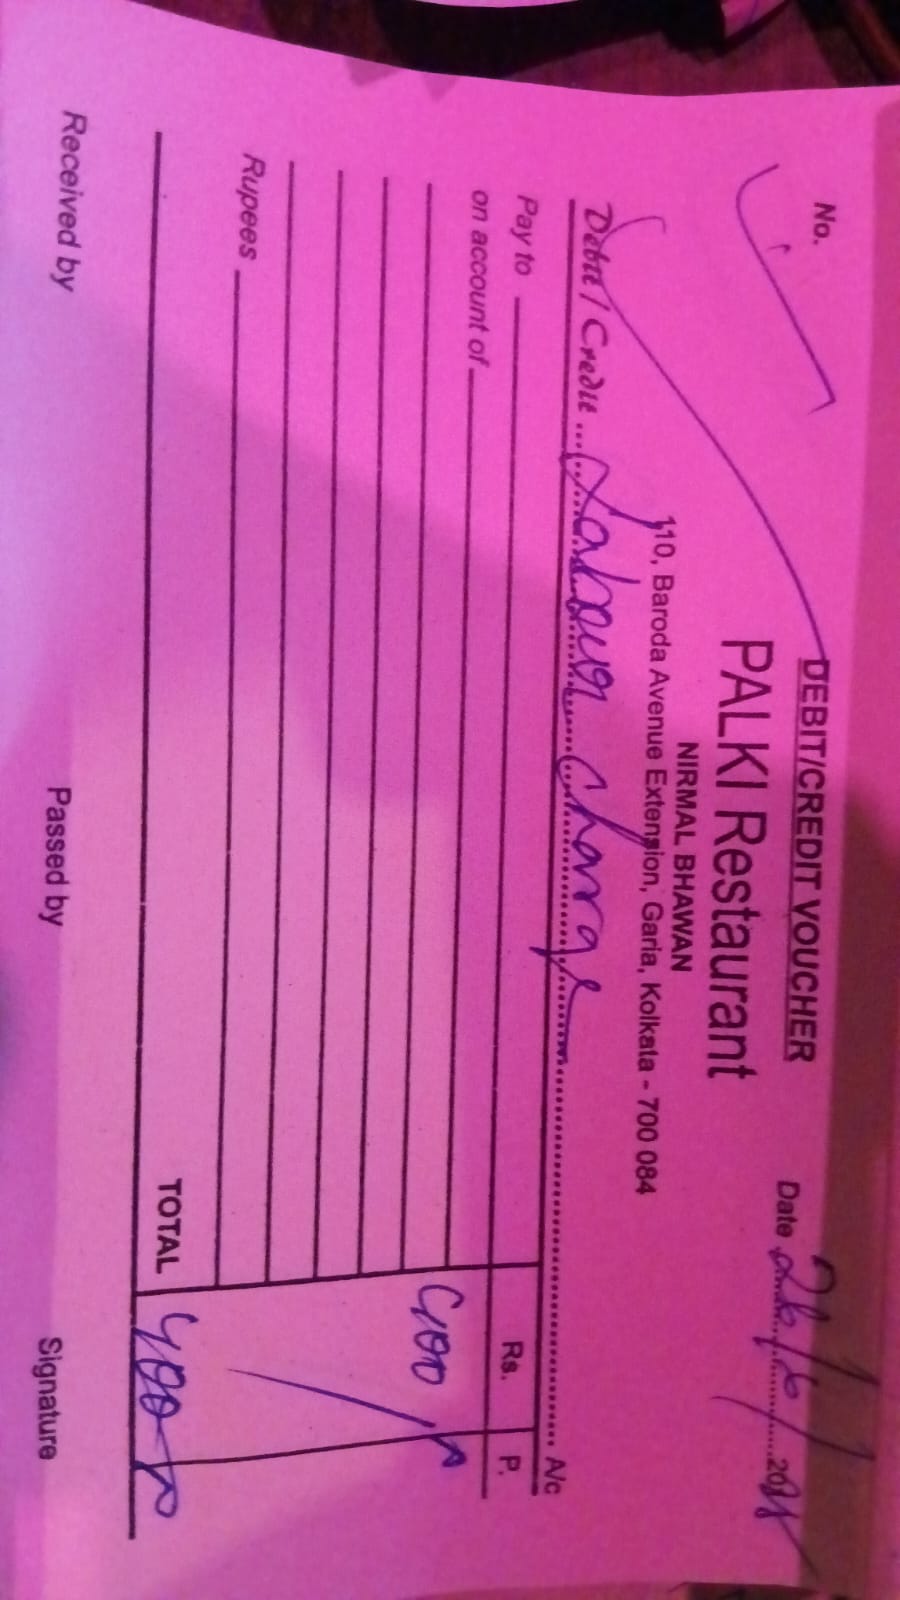 DEBIT/CREDIT VOUCHER
No.
PALKI Restaurant
Date 26/6/
NIRMAL BHAWAN
110, Baroda Avenue Extension, Garia, Kolkata - 700 084
Debit / Credit ... Labour charge ... A/c
Pay to
Rs. P.
on account of
400
Rupees
TOTAL 400
Received by Passed by Signature